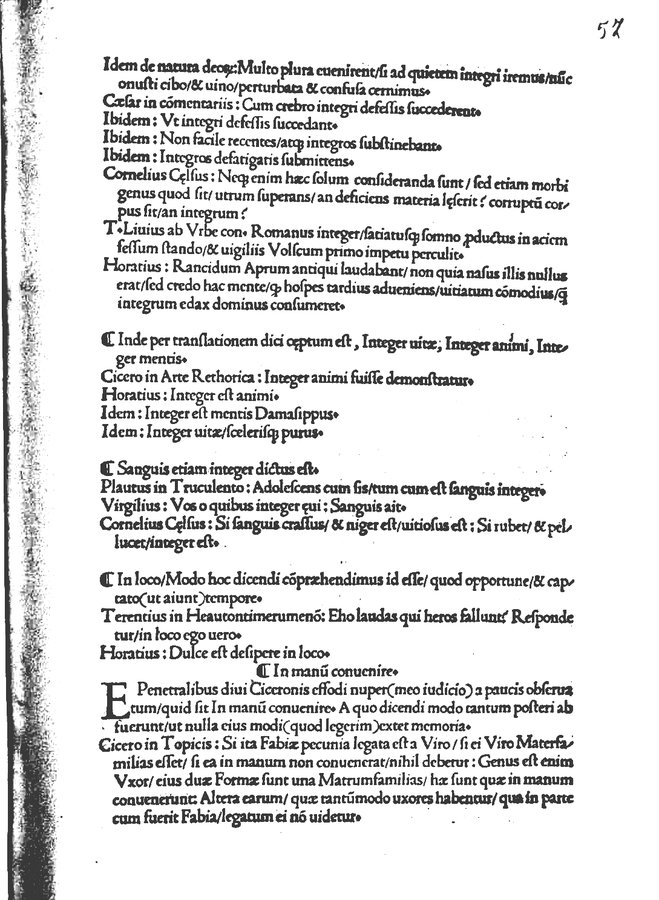 57
Idem de natura deoꝝ: Multo plura euenirent/ſi ad quietem integri iremus/nũc
onuſti cibo/& uino/perturbata & confuſa cernimus.
Cæſar in cõmentariis : Cum crebro integri defeſſis ſuccederent.
Ibidem : Vt integri defeſſis ſuccedant.
Ibidem : Non facile recentes/atqꝫ integros ſubſtinebant.
Ibidem : Integros defatigatis ſubmittens.
Cornelius Cęlſus : Neqꝫ enim hæc ſolum conſideranda ſunt / ſed etiam morbi
genus quod ſit/ utrum ſuperans/ an deficiens materia lęſerit ? corruptũ cor-
pus ſit/an integrum ?
T.Liuius ab Vrbe con. Romanus integer/ſatiatuſqꝫ ſomno ꝓductus in aciem
feſſum ſtando/& uigiliis Volſcum primo impetu perculit.
Horatius : Rancidum Aprum antiqui laudabant/ non quia naſus illis nullus
erat/ſed credo hac mente/ꝙ hoſpes tardius adueniens/uitiatum cõmodius/q̃
integrum edax dominus conſumeret.
¶ Inde per tranſlationem dici cęptum eſt , Integer uitæ; Integer animi, Inte-
ger mentis.
Cicero in Arte Rethorica : Integer animi fuiſſe demonſtratur.
Horatius : Integer eſt animi.
Idem : Integer eſt mentis Damaſippus.
Idem : Integer uitæ/ſceleriſqꝫ purus.
¶ Sanguis etiam integer dictus eſt.
Plautus in Truculento : Adoleſcens cum ſis/tum cum eſt ſanguis integer.
Virgilius : Vos o quibus integer ęui : Sanguis ait.
Cornelius Cęlſus : Si ſanguis craſſus/ & niger eſt/uitioſus eſt : Si rubet/ & pel-
lucet/integer eſt.
¶ In loco/Modo hoc dicendi cõpræhendimus id eſſe/ quod opportune/& cap-
tato(ut aiunt)tempore.
Terentius in Heautontimerumenõ: Eho laudas qui heros fallunt? Reſponde
tur/in loco ego uero.
Horatius : Dulce eſt deſipere in loco.
¶ In manũ conuenire.
E Penetralibus diui Ciceronis effodi nuper(meo iudicio) a paucis obſerua
tum/quid ſit In manũ conuenire. A quo dicendi modo tantum poſteri ab
fuerunt/ut nulla eius modi(quod legerim)extet memoria.
Cicero in Topicis : Si ita Fabiæ pecunia legata eſt a Viro / ſi ei Viro Materfa-
milias eſſet/ ſi ea in manum non conuenerat/nihil debetur : Genus eſt enim
Vxor/ eius duæ Formæ ſunt una Matrumfamilias/ hæ ſunt quæ in manum
conuenerunt: Altera earum/ quæ tantũmodo uxores habentur/ qua in parte
cum fuerit Fabia/legatum ei nõ uidetur.